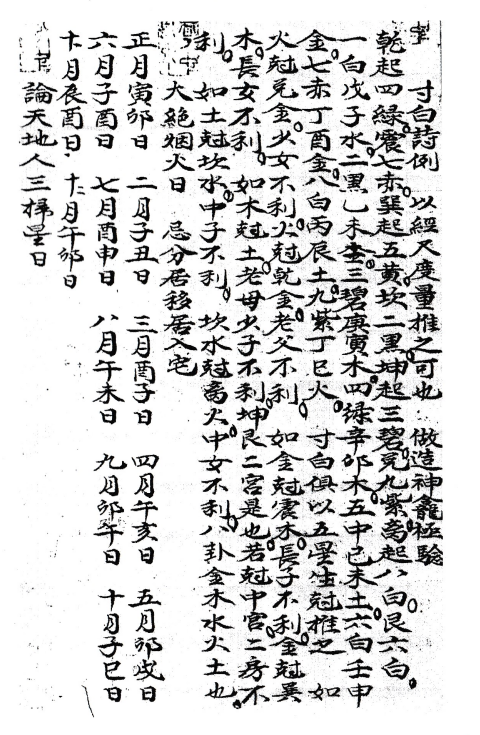 寸白詩例 以經尺度量推之可也 做造神龕極驗
乾起四綠震七赤巽起五黃坎二黑坤起三碧兌九紫离起八白艮六白
一白戊子水二黑乙未土三碧庚寅木四綠辛卯木五中己未土六白壬申
金七赤丁酉金八白丙辰土九紫丁巳火 寸白俱以五星生尅推之 如
火尅兌金少女不利火尅乾金老父不利 如金尅震木長子不利金尅巽
木長女不利 如木尅土老母少子不利坤艮二宮是也若尅中宮二房不
利 如土尅坎水中子不利 坎水尅离火中女不利八卦金木水火土也
大絶烟火日 忌分居移居入宅
正月寅卯日 二月子丑日 三月酉子日 四月午亥日 五月卯戌日
六月子酉日 七月酉申日 八月午未日 九月卯午日 十月子巳日
十一月辰酉日 十二月午卯日
論天地人三掃星日